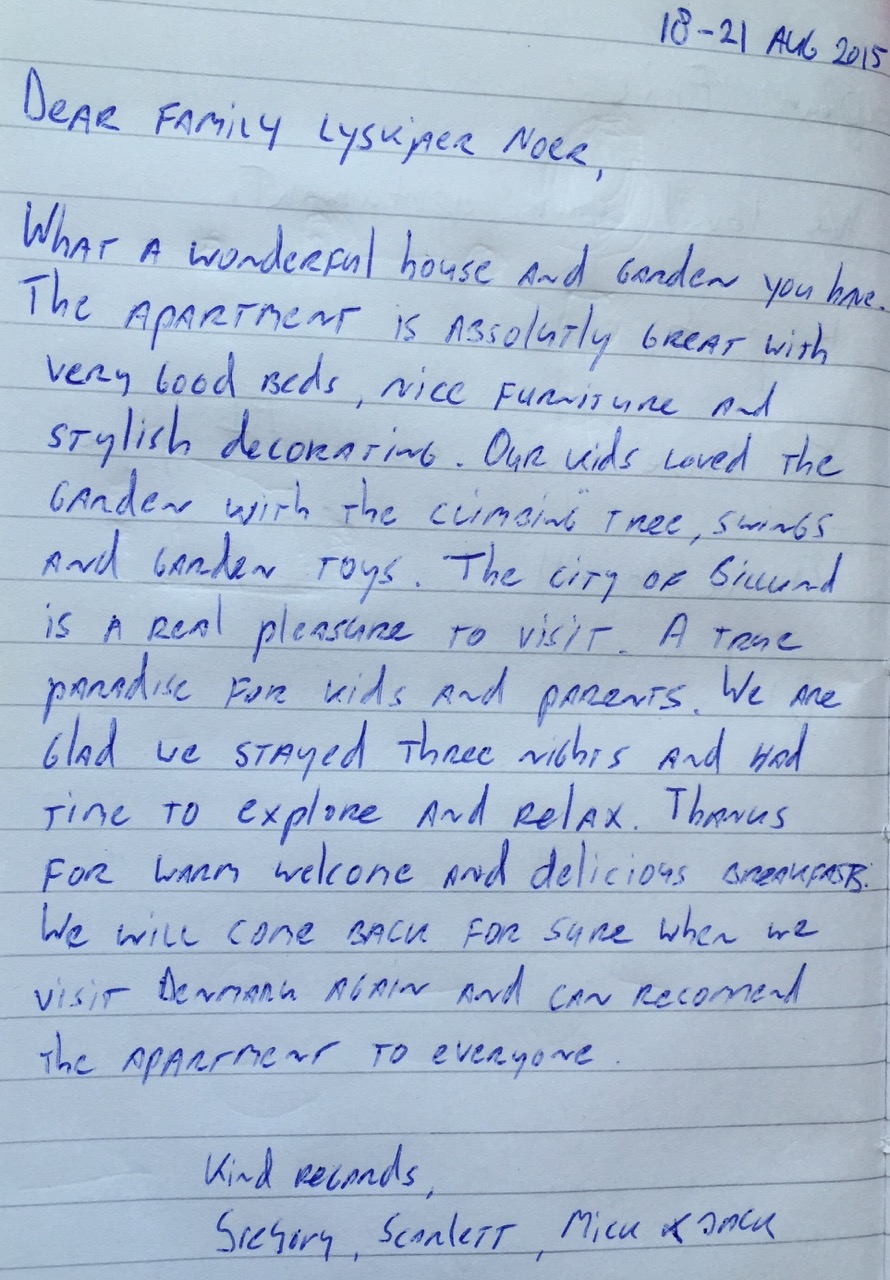 18-21 AUG 2015
Dear Family Lyskjaer Noer,
What a wonderful house and garden you have.
The apartment is absolutly great with
very good beds, nice furniture and
stylish decorating. Our kids loved the
garden with the climbing tree, swings
and garden toys. The city of Billund
is a real pleasure to visit. A true
paradise for kids and parents. We are
glad we stayed three nights and had
time to explore and relax. Thanks
for warm welcome and delicious breakfasts.
We will come back for sure when we
visit Denmark again and can recommend
the apartment to everyone.
Kind regards,
Gregory, Scarlett, Mick & Jack